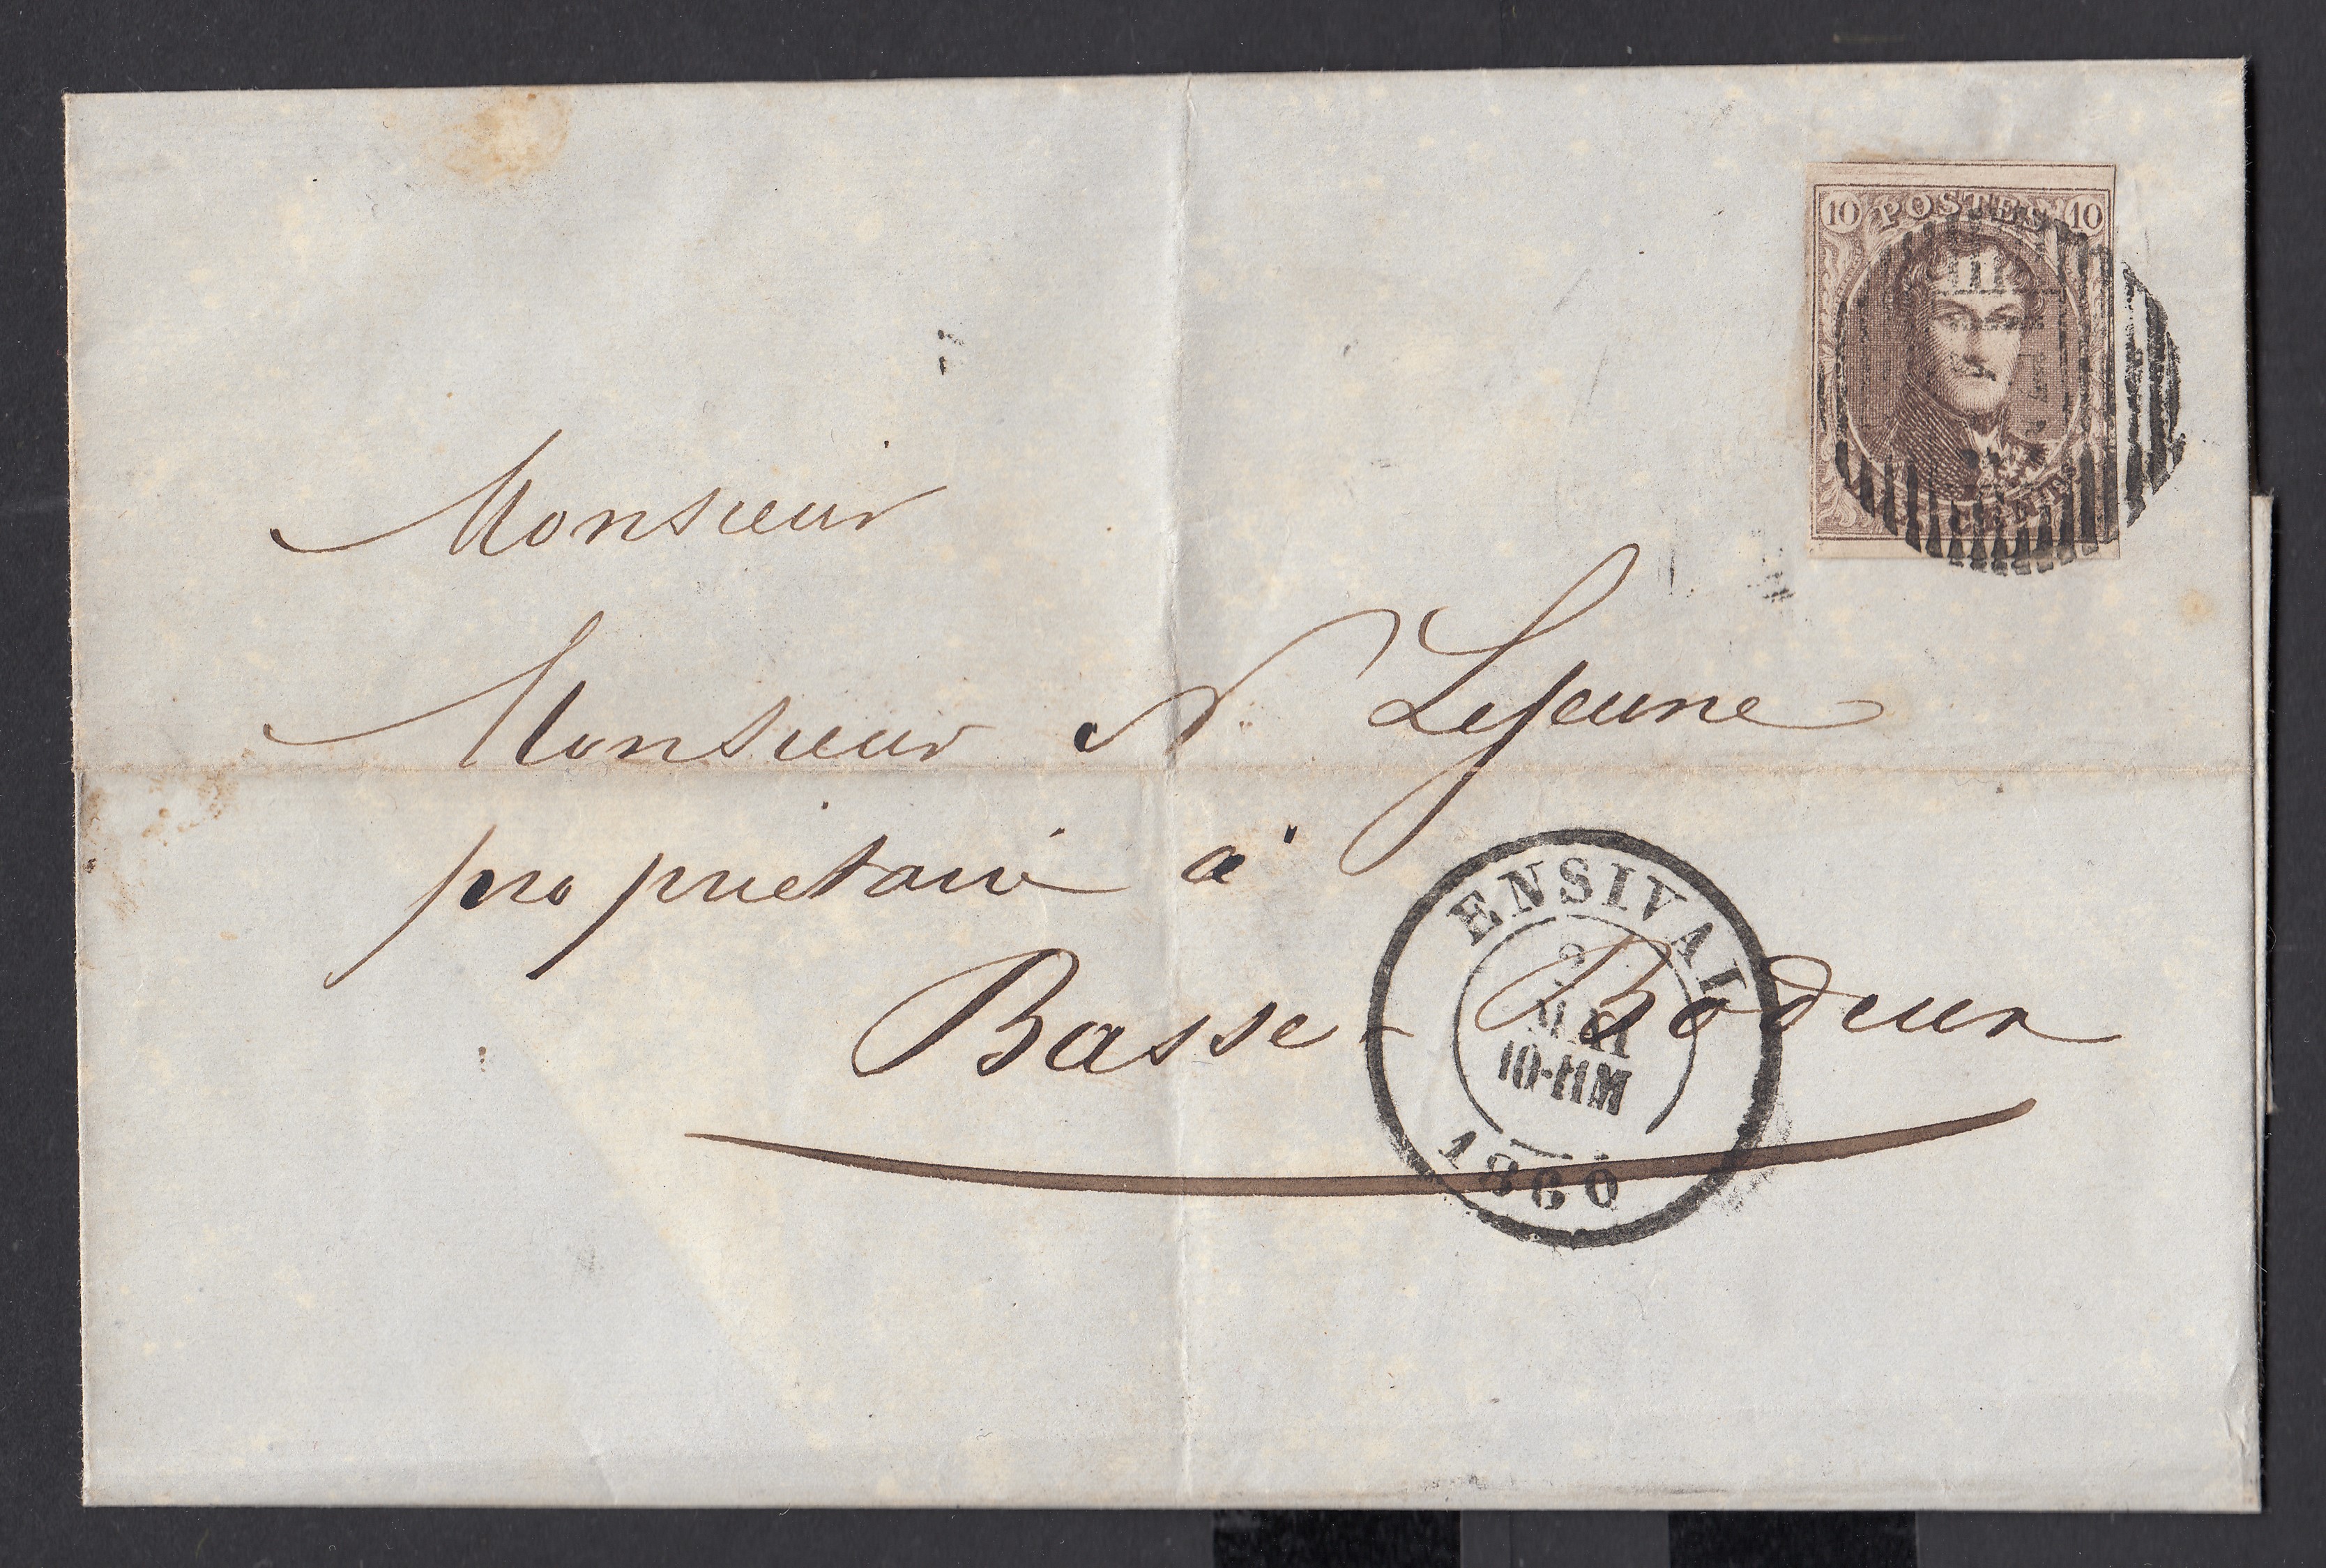 10 POSTES 10
Monsieur
Monsieur N. Lejeune
propriétaire à
Basse-Bodeux
ENSIVAL
MAI
10-11M
1860